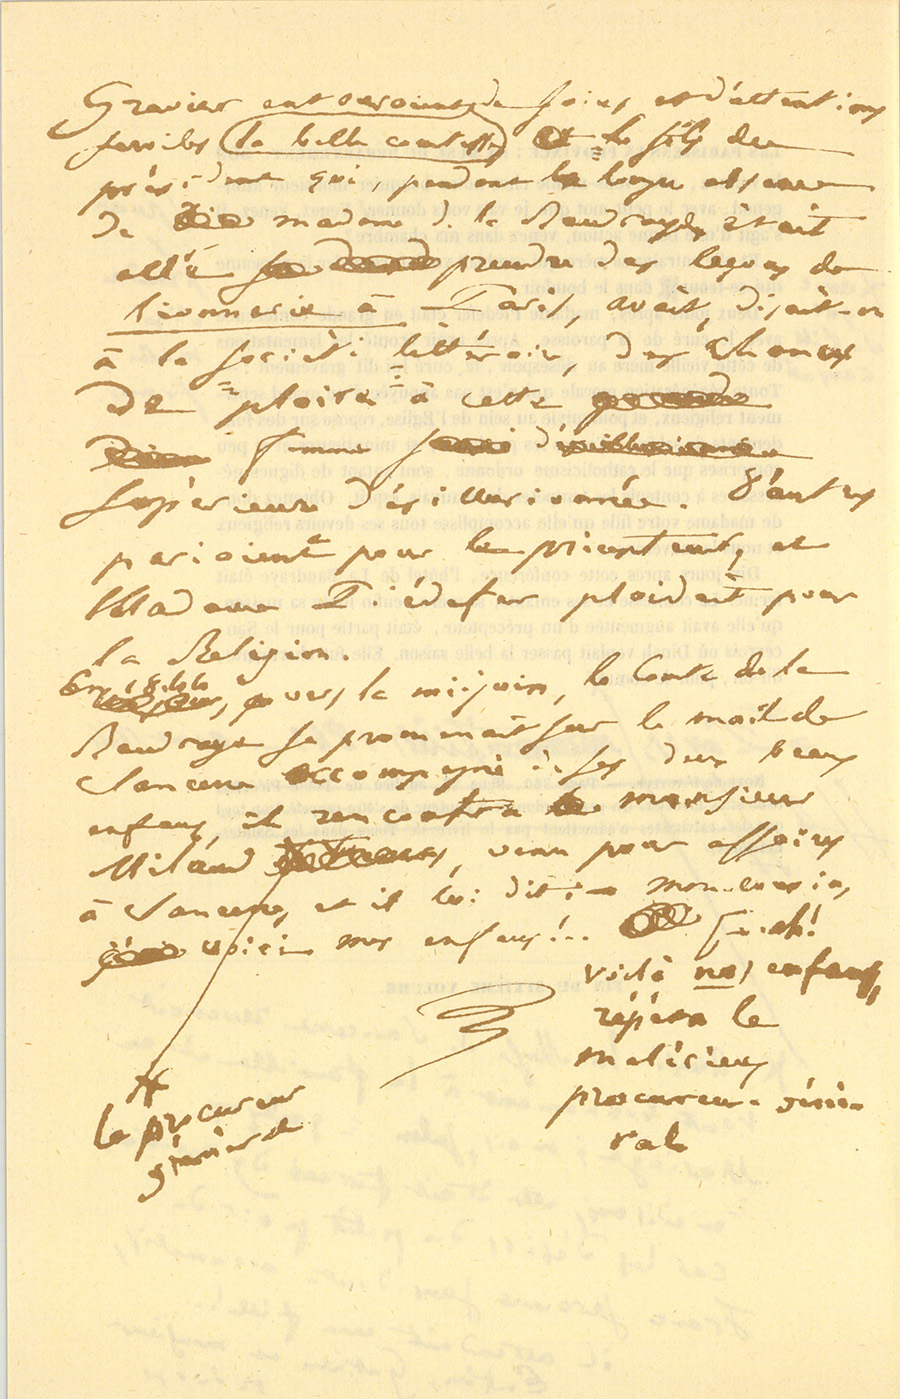 Gravier entouroient de soins et d'attentions
serviles la belle comtesse et le fils du
président qui, pendant la longue absence
de madame de la Baudraye, était
allé prendre des leçons de
lionnerie à Paris, avait, disait-on
à la société littéraire, des chances
de plaire à cette
femme
supérieure désillusionnée. D'autres
parioient pour le
Madame Piédefer plaidait pour
la Religion.
En 1844, vers la mi-juin, le Comte de la
Baudraye se promenait sur le mail de
Sancerre accompagné de ses deux beaux
enfans, il rencontra monsieur
Milaud, venu pour affaires
à Sancerre, et il lui dit : — mon cousin,
voici mes enfans!.. — ah!
voilà nos enfans,
répéta le
malicieux
procureur-géné-
ral
le procureur
général